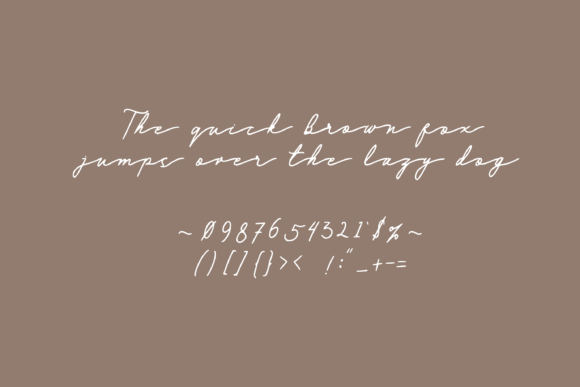 The quick brown fox
jumps over the lazy dog
~ 0987654321' $% ~
()[]{}>< !:"_+-=